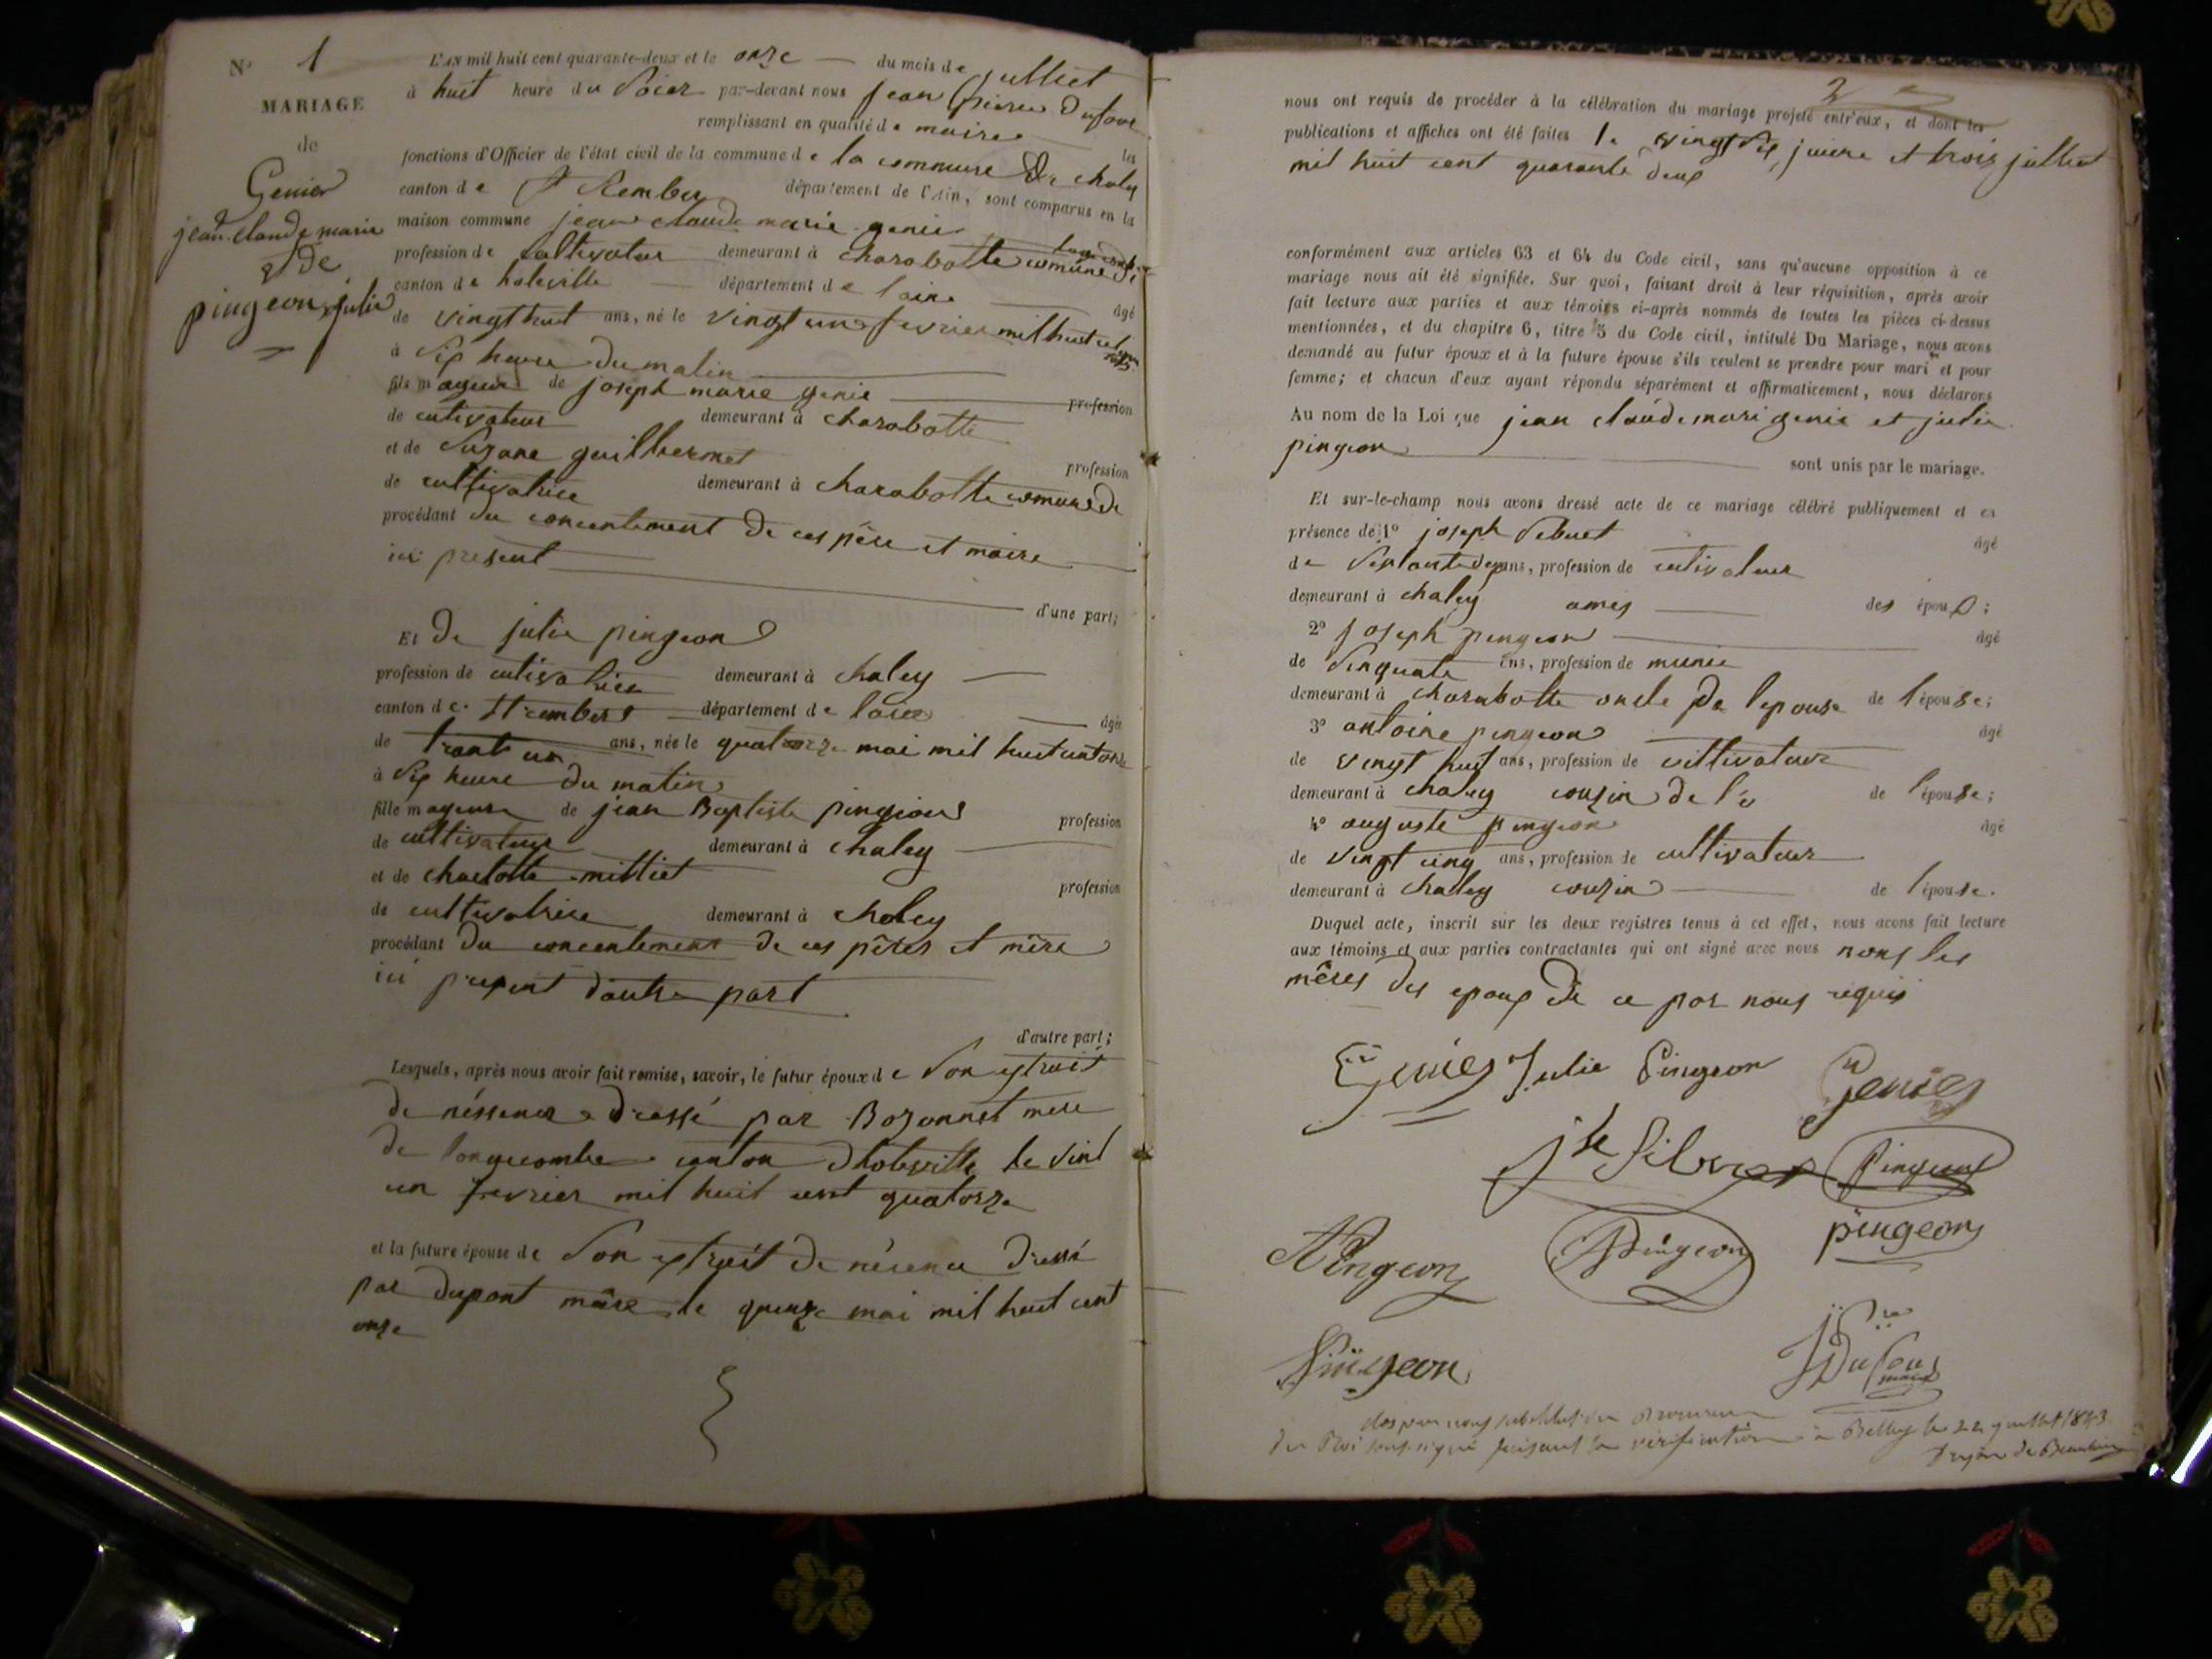 N° 1
MARIAGE
de
Genier
jean claude marie
et de
pingeon julie
L'AN mil huit cent quarante-deux et le onze du mois de julliet
à huit heure du Soier par-devant nous jean pierre Dufour
remplissant en qualité de maire les
fonctions d'Officier de l'état civil de la commune de la commune De chaley
canton de St Rember département de l'Ain, sont comparus en la
maison commune jean claude marie genie
profession de cultivateur demeurant à charabotte comune de
canton de hoteville département de l'aine âgé
de vingt huit ans, né le vingt un fevrier mil huit
à Six heure du matin
fils mageur de joseph marie genie profession
de cutivateur demeurant à charabotte
et de Suzane guillhermet profession
de cultivatrice demeurant à charabotte comune de
procédant du concentement de ces père et maire
ici present
d'une part;
Et De julie pingeon
profession de cutivatrice demeurant à chaley
canton de St rembert département de l'aire âgée
de trante un ans, née le quatorze mai mil huit cent onze
à Six heure du matin
fille mageure de jean Baptiste pingion profession
de cultivateur demeurant à chaley
et de charlotte milliet profession
de cultivatrice demeurant à chaley
procédant du concentement de ces pères et mère
ici present d'autre part
d'autre part;
Lesquels, après nous avoir fait remise, savoir, le futur époux de Son extrait
de néssence dressé par Bozonnet mere
de longecombe canton dhoteville le vint
un fevrier mil huit cent quatorze
et la future épouse de Son extrait de nésence dressé
par dupont màire le quinze mai mil huit cent
onze
nous ont requis de procéder à la célébration du mariage projeté entr'eux, et dont les
publications et affiches ont été faites le vingt Six juiene et trois julliet
mil huit cent quarante deux
conformément aux articles 63 et 64 du Code civil, sans qu'aucune opposition à ce
mariage nous ait été signifiée. Sur quoi, faisant droit à leur réquisition, après avoir
fait lecture aux parties et aux témoins ci-après nommés de toutes les pièces ci-dessus
mentionnées, et du chapitre 6, titre 5 du Code civil, intitulé Du Mariage, nous avons
demandé au futur époux et à la future épouse s'ils veulent se prendre pour mari et pour
femme; et chacun d'eux ayant répondu séparément et affirmativement, nous déclarons
Au nom de la Loi que jean claude mari genie et julie
pingeon sont unis par le mariage.
Et sur-le-champ nous avons dressé acte de ce mariage célébré publiquement et en
présence de 1° joseph Sibuet âgé
de ans, profession de cutivateur
demeurant à chaley amis des époux;
2° joseph pingeon âgé
de Sinquate ans, profession de munie
demeurant à charabotte oncle de lepouse de l'épouse;
3° antoine pingeon âgé
de vingt huit ans, profession de cultivateur
demeurant à chaley couzin de l'é de l'épouse;
4° auguste pingeon âgé
de vingt cinq ans, profession de cultivateur
demeurant à chaley couzin de l'épouse.
Duquel acte, inscrit sur les deux registres tenus à cet effet, nous avons fait lecture
aux témoins et aux parties contractantes qui ont signé avec nous nons les
mêres des epoux De ce par nous requis
Genier Julie Pingeon Genier
jh Sibuet Pingeon
APingeon Pingeon pingeon
Pingeon JDufour
maire
clos par nous substitut du Procureur
du Roi soussigné faisant la vérification à Belley le 22 juillet 1843